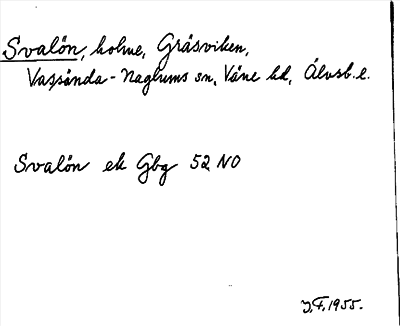 Svalön, holme, Gråsviken,
Vassända-Naglums sn, Väne hd, Älvsb. l.
Svalön ek Gbg 52 NO
J.F. 1955.